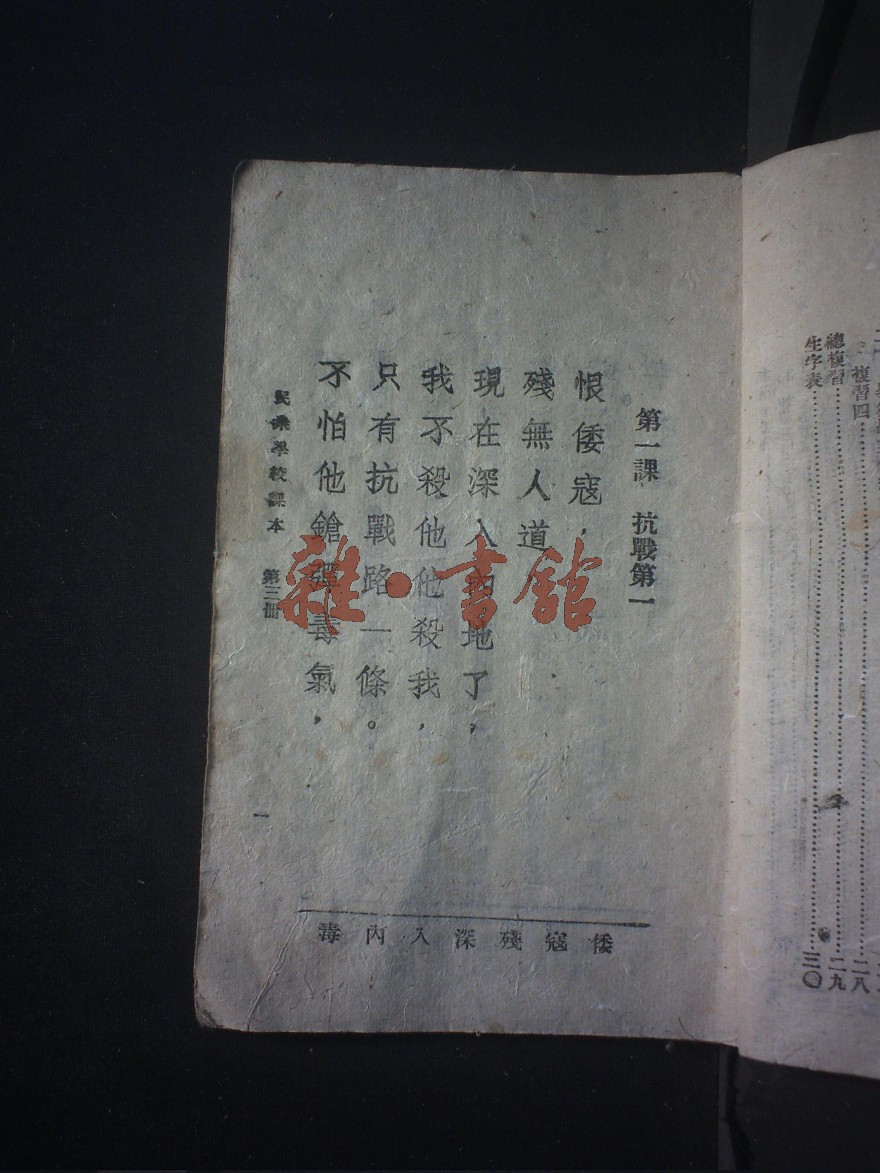 總複習 二九
生字表 三〇
複習四 二八
第一課 抗戰第一
恨倭寇，
殘無人道
現在深入內地了，
我不殺他他殺我，
只有抗戰路一條。
不怕他鎗彈毒氣，
民衆學校課本 第三冊
一
倭寇殘深入內毒
雜·書館